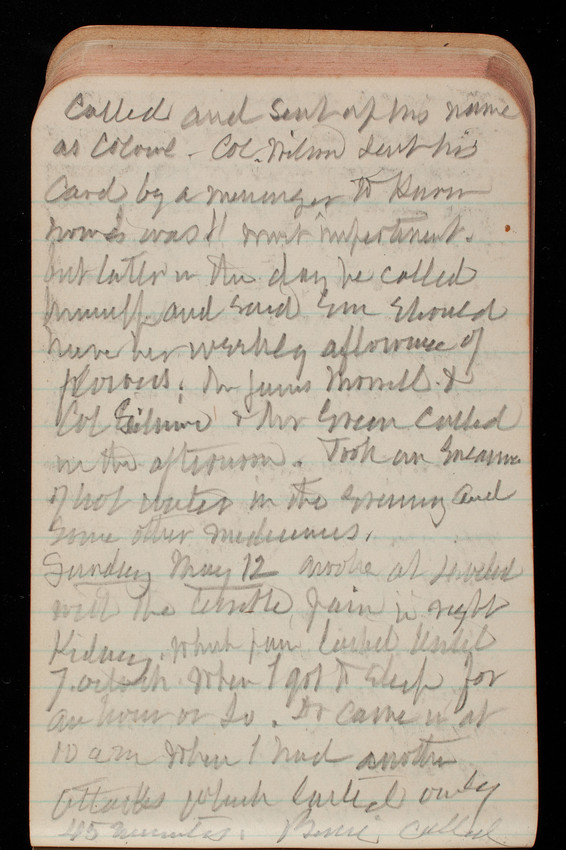 Called and sent up his name
as Colonel - Col. Wilson sent his
Card by a messenger to know
how I was!! most impertinent.
but later in the day he called
himself and said Em should
have her weekly allowance of
flowers. Mr James Morrell &
Col Gilmore & Mr Green called
in the afternoon. Took an Enema
of hot water in the Evening and
Some other medicines.
Sunday May 12 awoke at
with the terrible pain in right
Kidney. which pain lasted Until
7. oclock when I got to Sleep for
an hour or So. Dr Came in at
10 am when I had another
attacks which lasted only
45 minutes. called